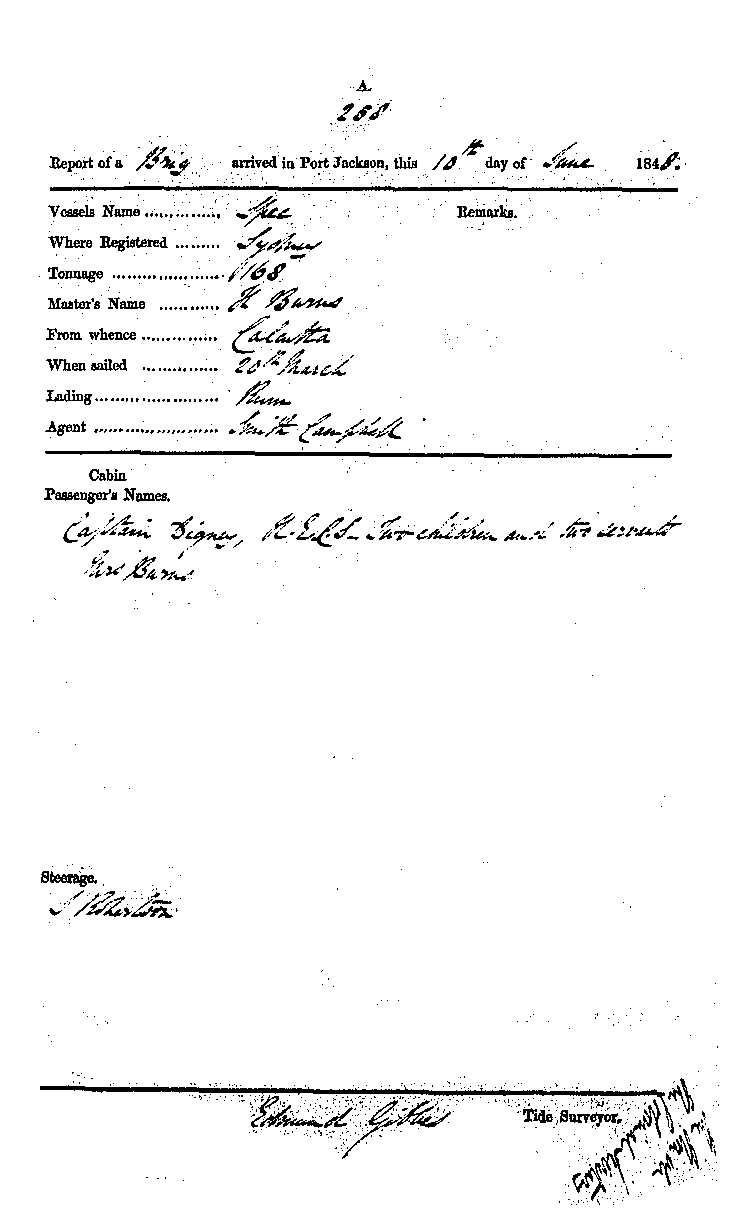 A.
268
Report of a Brig arrived in Port Jackson, this 10th day of June 1848.
Vessels Name .............. Spec
Remarks.
Where Registered ......... Sydney
Tonnage ...................... 168
Master's Name ............ H Burns
From whence ............... Calcutta
When sailed ............... 20th March
Lading ........................ Rum
Agent ........................ Smith Campbell
Cabin
Passenger's Names.
Captain Digney, H.E.C.S. Two children and two servants
Mrs Burns
Steerage.
J Robertson
Edmund Gibbes Tide Surveyor.